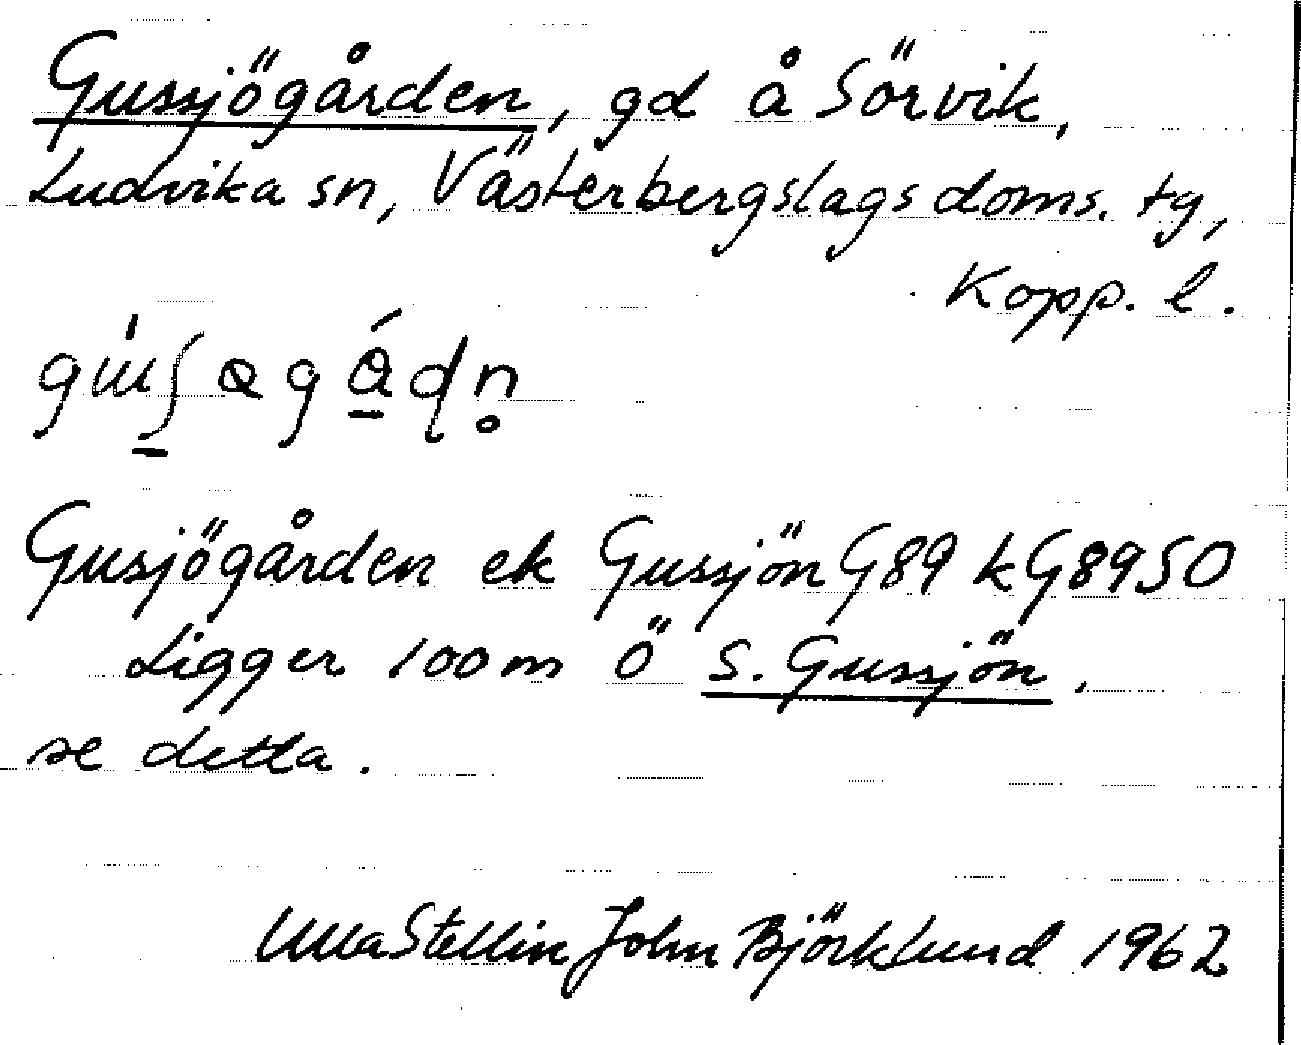 Gussjögården, gd å Sörvik,
Ludvika sn, Västerbergslags doms. tg,
Kopp. l.
Gusjögården ek Gussjön G89 kG89SO
Ligger 100 m Ö S. Gussjön,
se detta.
Ulla Stellin John Björklund 1962